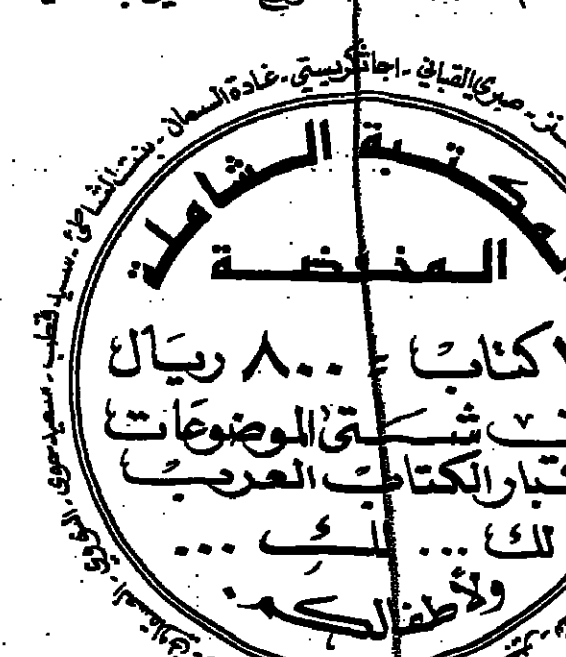 صبري القباني - اجاثا كريستي - غادة السمان - بنت الشاطئ - سيد قطب - سعيد حوى - النووي
المكتبة الشاملة
المخفضة
كتاب = ٨٠٠ ريال
شتى الموضوعات
الكتاب العرب
لك ... لكِ ...
ولأطفالكم